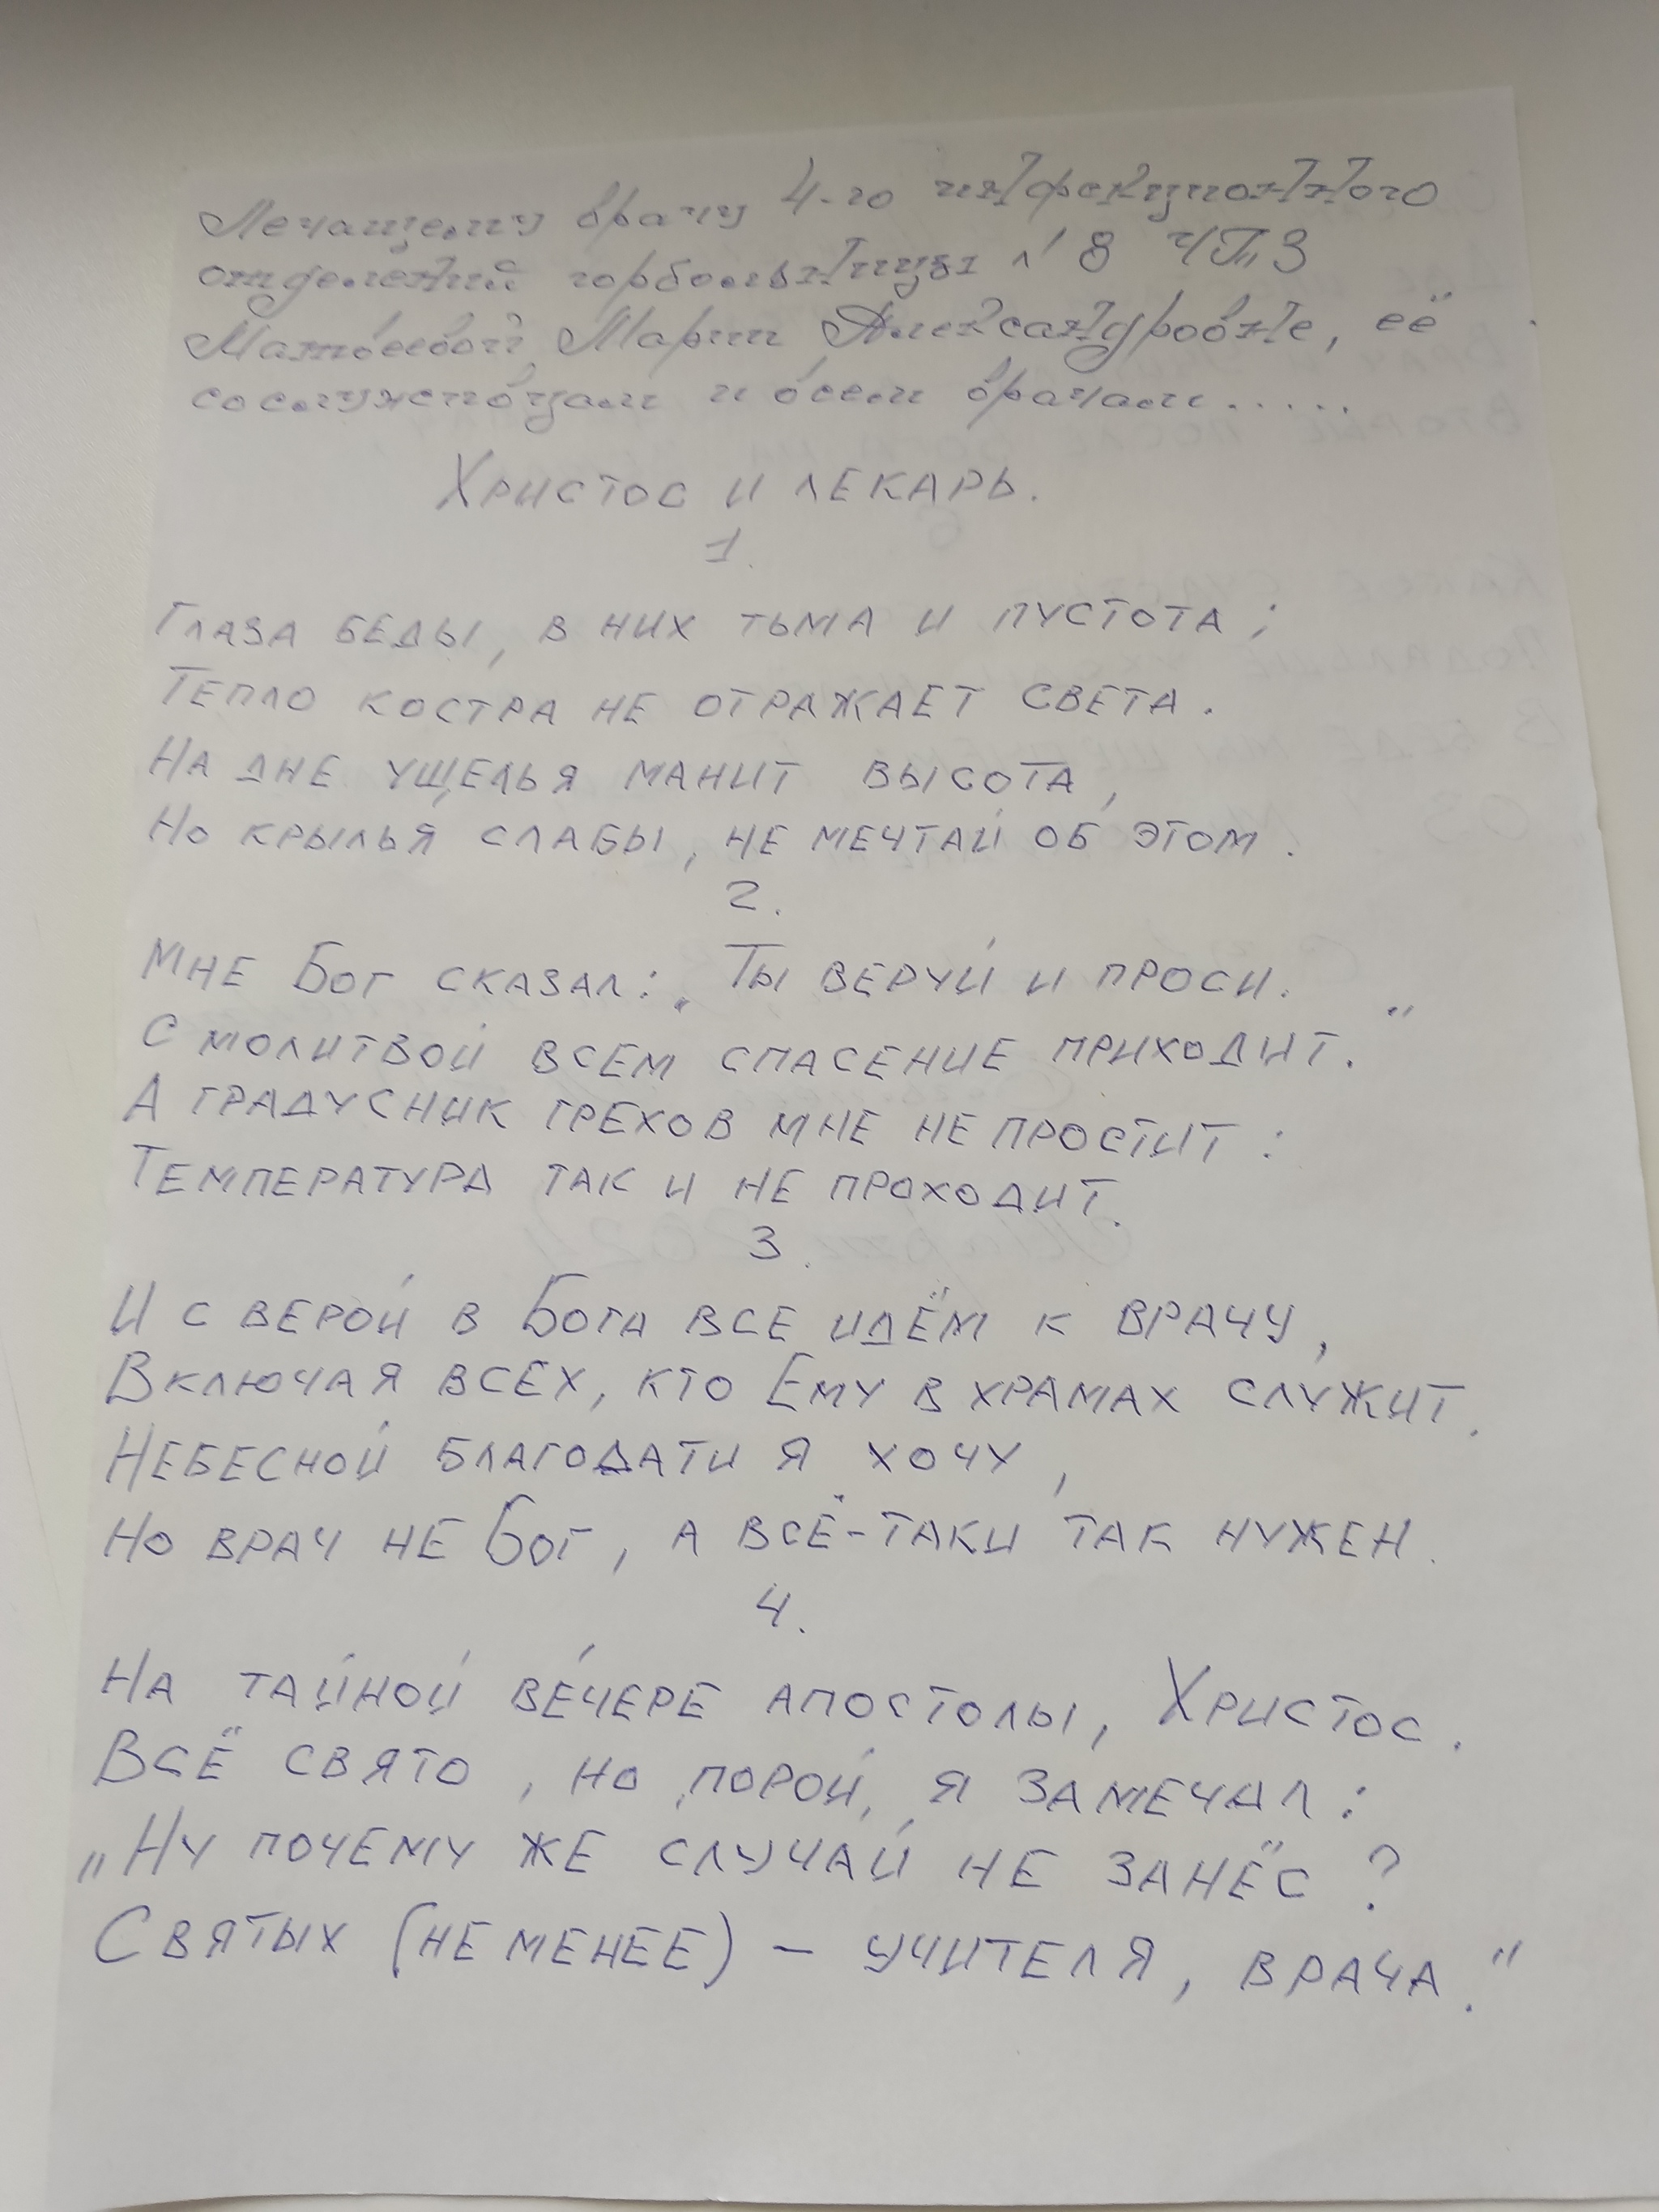 Лечащему врачу 4-го инфекционного
отделений горбольницы №8 ЧТПЗ
Матвеевой Марии Александровне, её
сослуживцам и всем врачам.....
Христос и лекарь.
1.
Глаза беды, в них тьма и пустота;
Тепло костра не отражает света.
На дне ущелья манит высота,
Но крылья слабы, не мечтай об этом.
2.
Мне Бог сказал: „Ты веруй и проси.
С молитвой всем спасение приходит."
А градусник грехов мне не простит:
Температура так и не проходит.
3.
И с верой в Бога все идём к врачу,
Включая всех, кто Ему в храмах служит.
Небесной благодати я хочу,
Но врач не Бог, а всё-таки так нужен.
4.
На тайной ве́чере апостолы, Христос.
Всё свято, но, порой, я замечал:
„Ну почему же случай не занёс?
Святых (не менее) – учителя, врача."